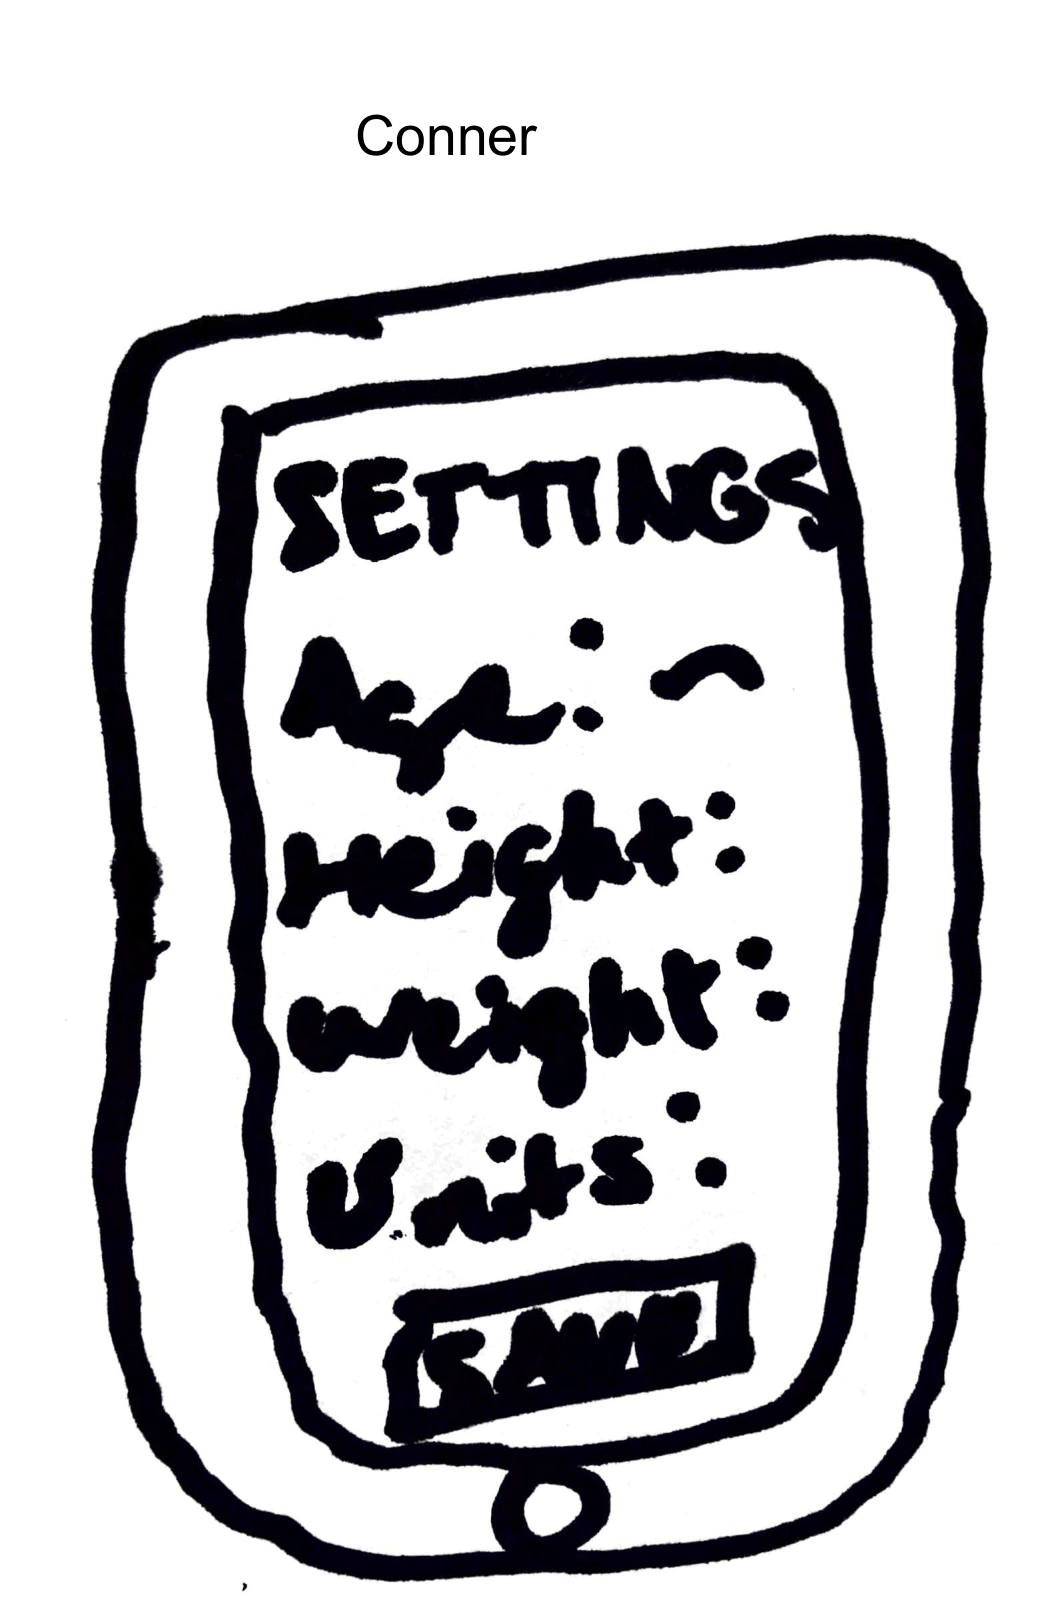 Conner
SETTINGS
Age:
Height:
weight:
Units:
SAVE